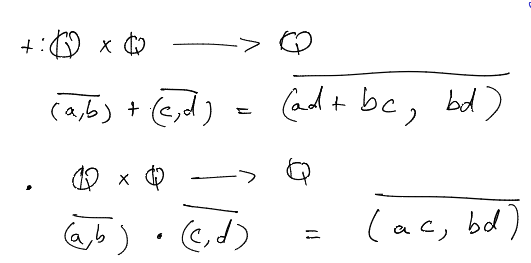 +: ℚ × ℚ ⟶ ℚ
\overline{(a,b)} + \overline{(c,d)} = \overline{(ad + bc, bd)}
· ℚ × ℚ ⟶ ℚ
\overline{(a,b)} · \overline{(c,d)} = \overline{(ac, bd)}